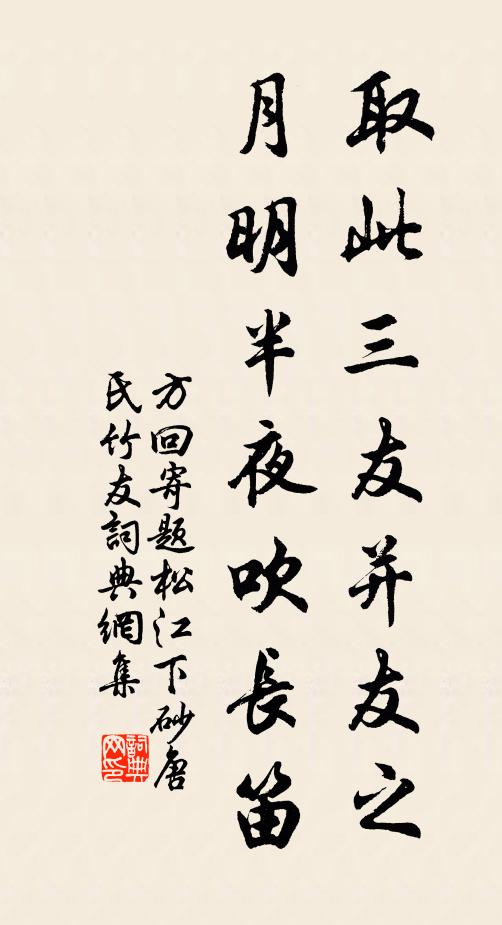 取此三友并友之
月明半夜吹長笛
方回寄题松江下砂唐
氏竹友詞典網集
詞典网印